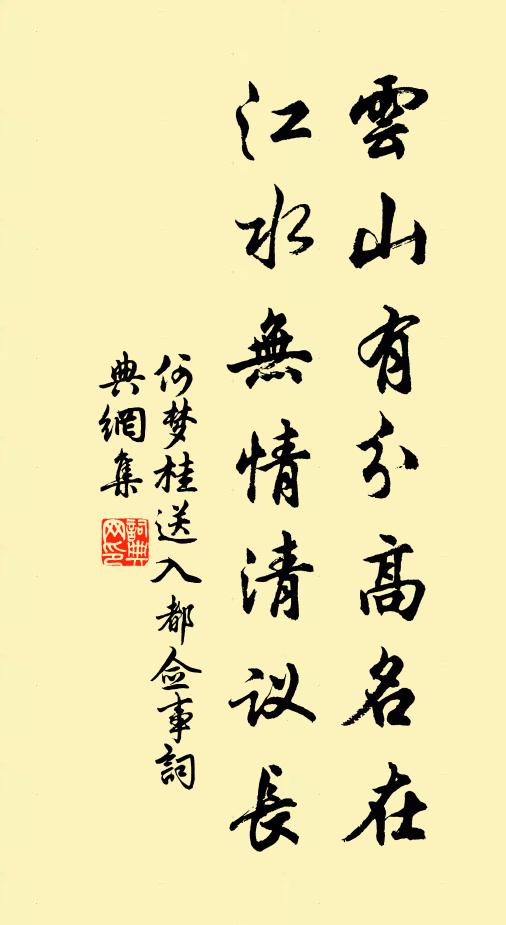 雲山有分高名在
江水無情清议長
何梦桂送入都佥事詞
典網集
詞典网印